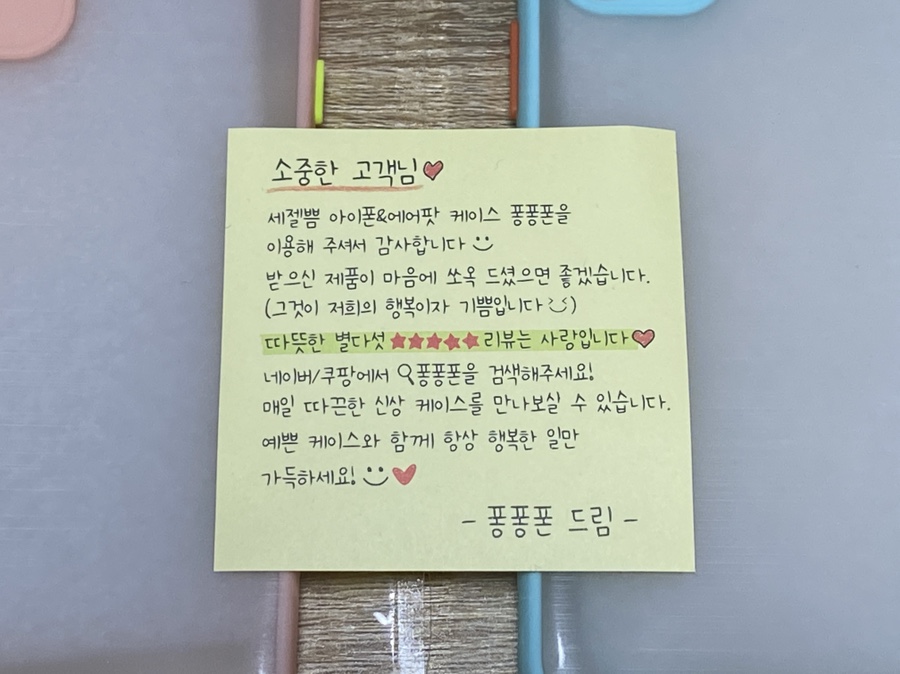 소중한 고객님♥
세젤쁨 아이폰&에어팟 케이스 퐁퐁폰을
이용해 주셔서 감사합니다
받으신 제품이 마음에 쏘옥 드셨으면 좋겠습니다.
(그것이 저희의 행복이자 기쁨입니다)
따뜻한 별다섯 ★★★★★ 리뷰는 사랑입니다♥
네이버/쿠팡에서 퐁퐁폰을 검색해주세요!
매일 따끈한 신상 케이스를 만나보실 수 있습니다.
예쁜 케이스와 함께 항상 행복한 일만
가득하세요! ♥
- 퐁퐁폰 드림 -